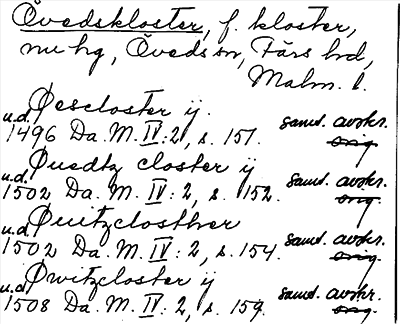 Övedskloster, f. kloster,
nu hg, Öveds sn, Färs hd,
Malm. l.
Øescloster ij.
u.d. 1496 Da. M. IV: 2, s. 151. samt. avskr. orig.
Øuedtz closter ij
u.d. 1502 Da. M. IV: 2, s. 152. samt. avskr. orig.
Øuitzclosther
u.d. 1502 Da. M. IV: 2, s. 154. samt. avskr. orig.
Øwitzcloster ij
u.d. 1508 Da. M. IV: 2, s. 159. samt. avskr. orig.